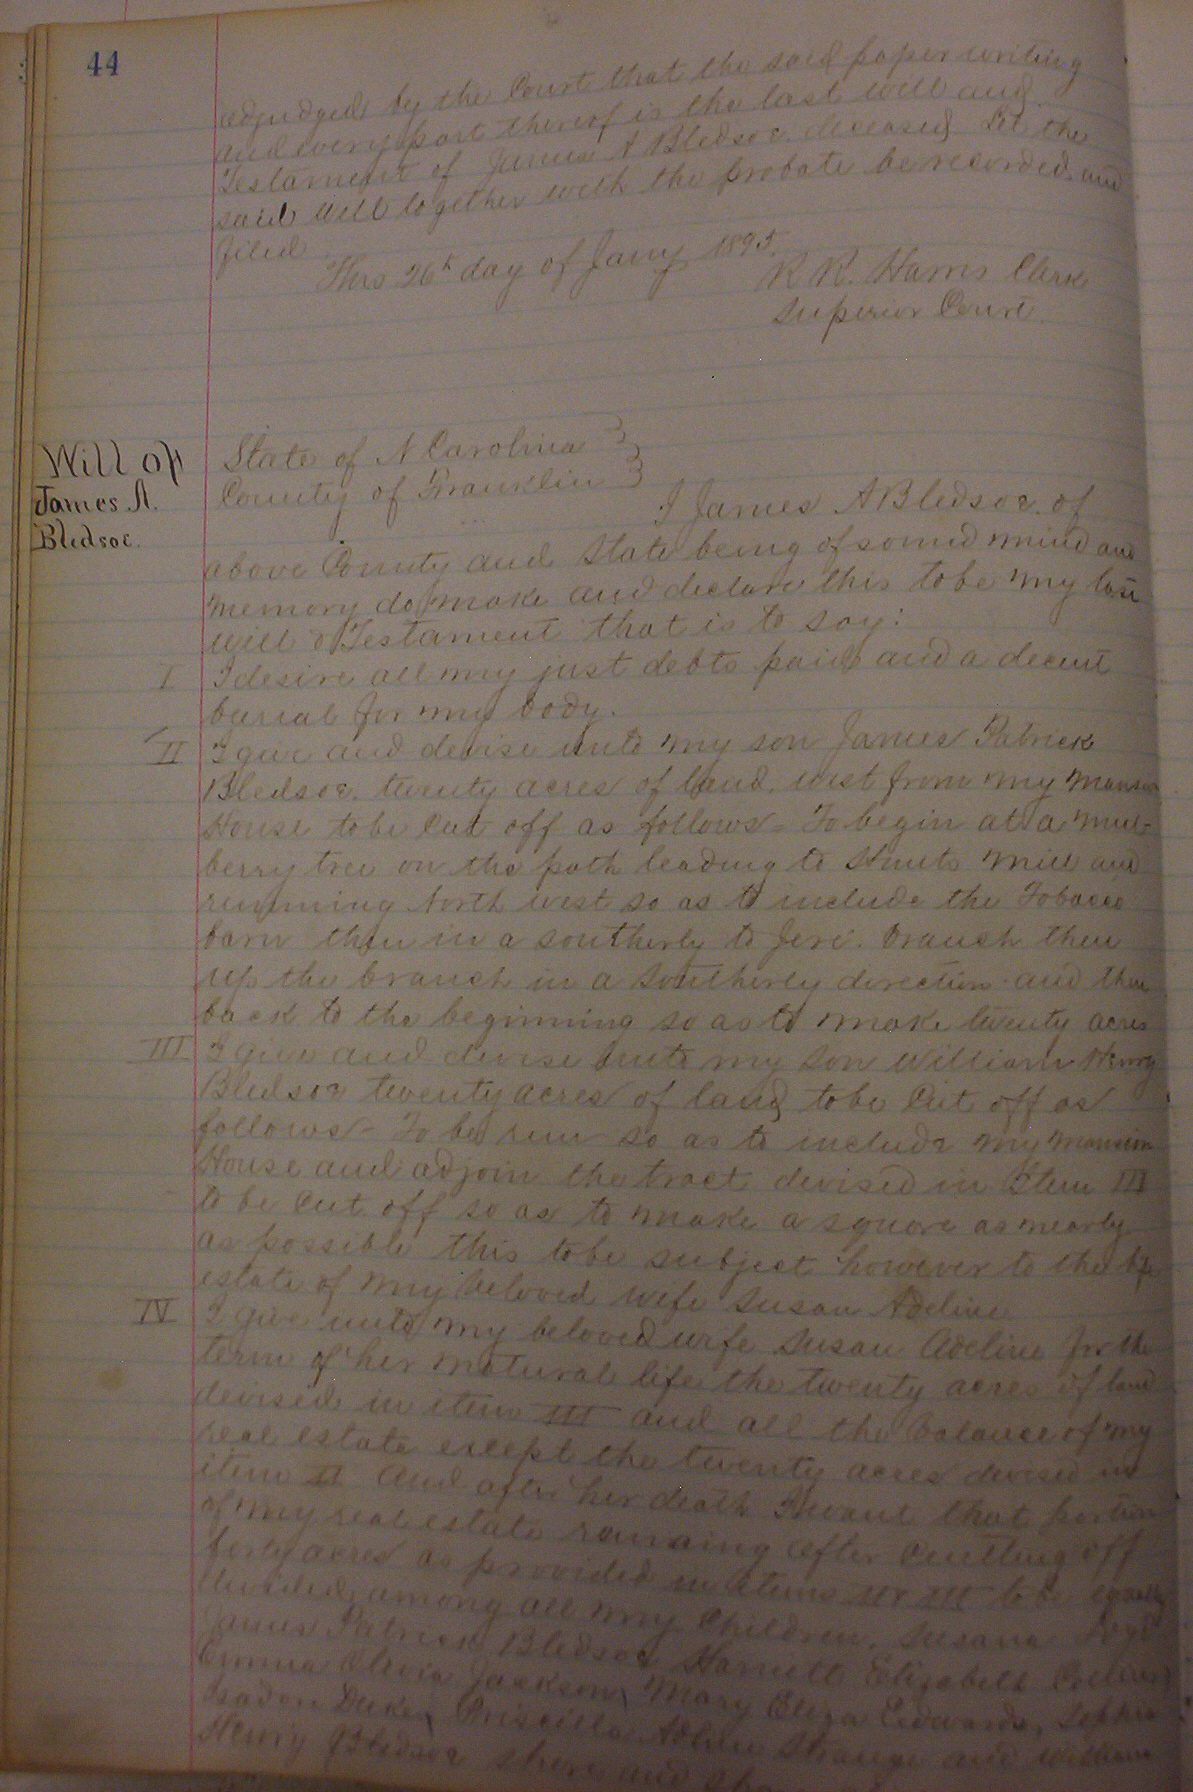 44
adjudged by the Court that the said paper writing
and every part thereof is the last will and
Testament of James A Bledsoe, deceased. Let the
said Will together with the probate be recorded and
filed.
This 26th day of Jany 1895.
R R. Harris Clerk
Superior Court.
Will of
James A.
Bledsoe.
State of N Carolina
County of Franklin
I James A Bledsoe. of
above County and State being of sound mind and
memory do make and declare this to be my last
will & Testament that is to say:
I I desire all my just debts paid and a decent
burial for my body.
II I give and devise unto my son James Patrick
Bledsoe. twenty acres of land. west from my Mansion
House to be Cut off as follows - To begin at a mul-
berry tree on the path leading to Hunts Mill and
running North west so as to include the Tobacco
barn then in a southerly to branch then
up the branch in a southerly direction and then
back to the beginning so as to make twenty acres
III I give and devise unto my son William Henry
Bledsoe twenty acres of land to be Cut off as
follows - To be run so as to include my mansion
House and adjoin the tract devised in Item III
to be Cut off so as to make a square as nearly
as possible this to be subject however to the life
estate of my beloved wife Susan Adeline
IV I give unto my beloved wife Susan Adeline for the
term of her natural life the twenty acres of land
devised in item III and all the balance of my
real estate except the twenty acres devised in
item II and after her death I want that portion
of my real estate remaining after Cutting off
forty acres as provided in items III to be equally
divided among all my Children. Susana
James Patrick Bledsoe Harriett Elizabeth
Emma Olivia Jackson, Mary Eliza Edwards,
Duke, Priscilla Adline Strange and William
Henry Bledsoe share and